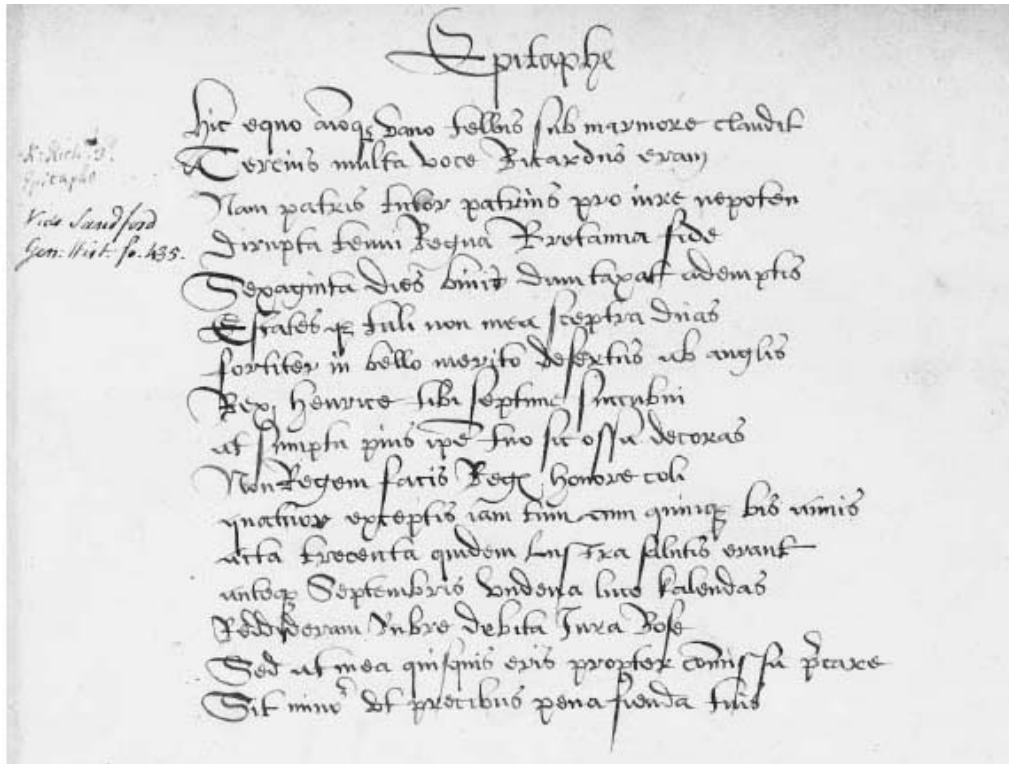 Epitaphe
Hic ego quem vario tellus sub marmore claudit
Tercius multa voce Ricardus eram
Nam patris tutor patrius pro iure nepoten
dirupta tenui Regna Bretannia fide
Sexaginta dies binis dumtaxatt ademptis
Estates qz tuli non mea sceptra duas
fortiter in bello merito desertus ab anglis
Rex Henrice tibi septime succubui
at sumptu pius ipse tuo sic ossa decoras
Non Regem facis Regz honore coli
quatuor exceptis iam tum cum quinqz bis annis
acta trecenta quidem lustra salutis erant
anteqz Septembris undena luce kalendas
Redderam Rubre debita Jura Rose
Sed at mea quisquis eris propter comissa precare
Sit minor ut precibus pena fienda tuis
K. Rich. 3d.
Epitaphe
Vide Sandford
Gen. Hist. fo. 435.